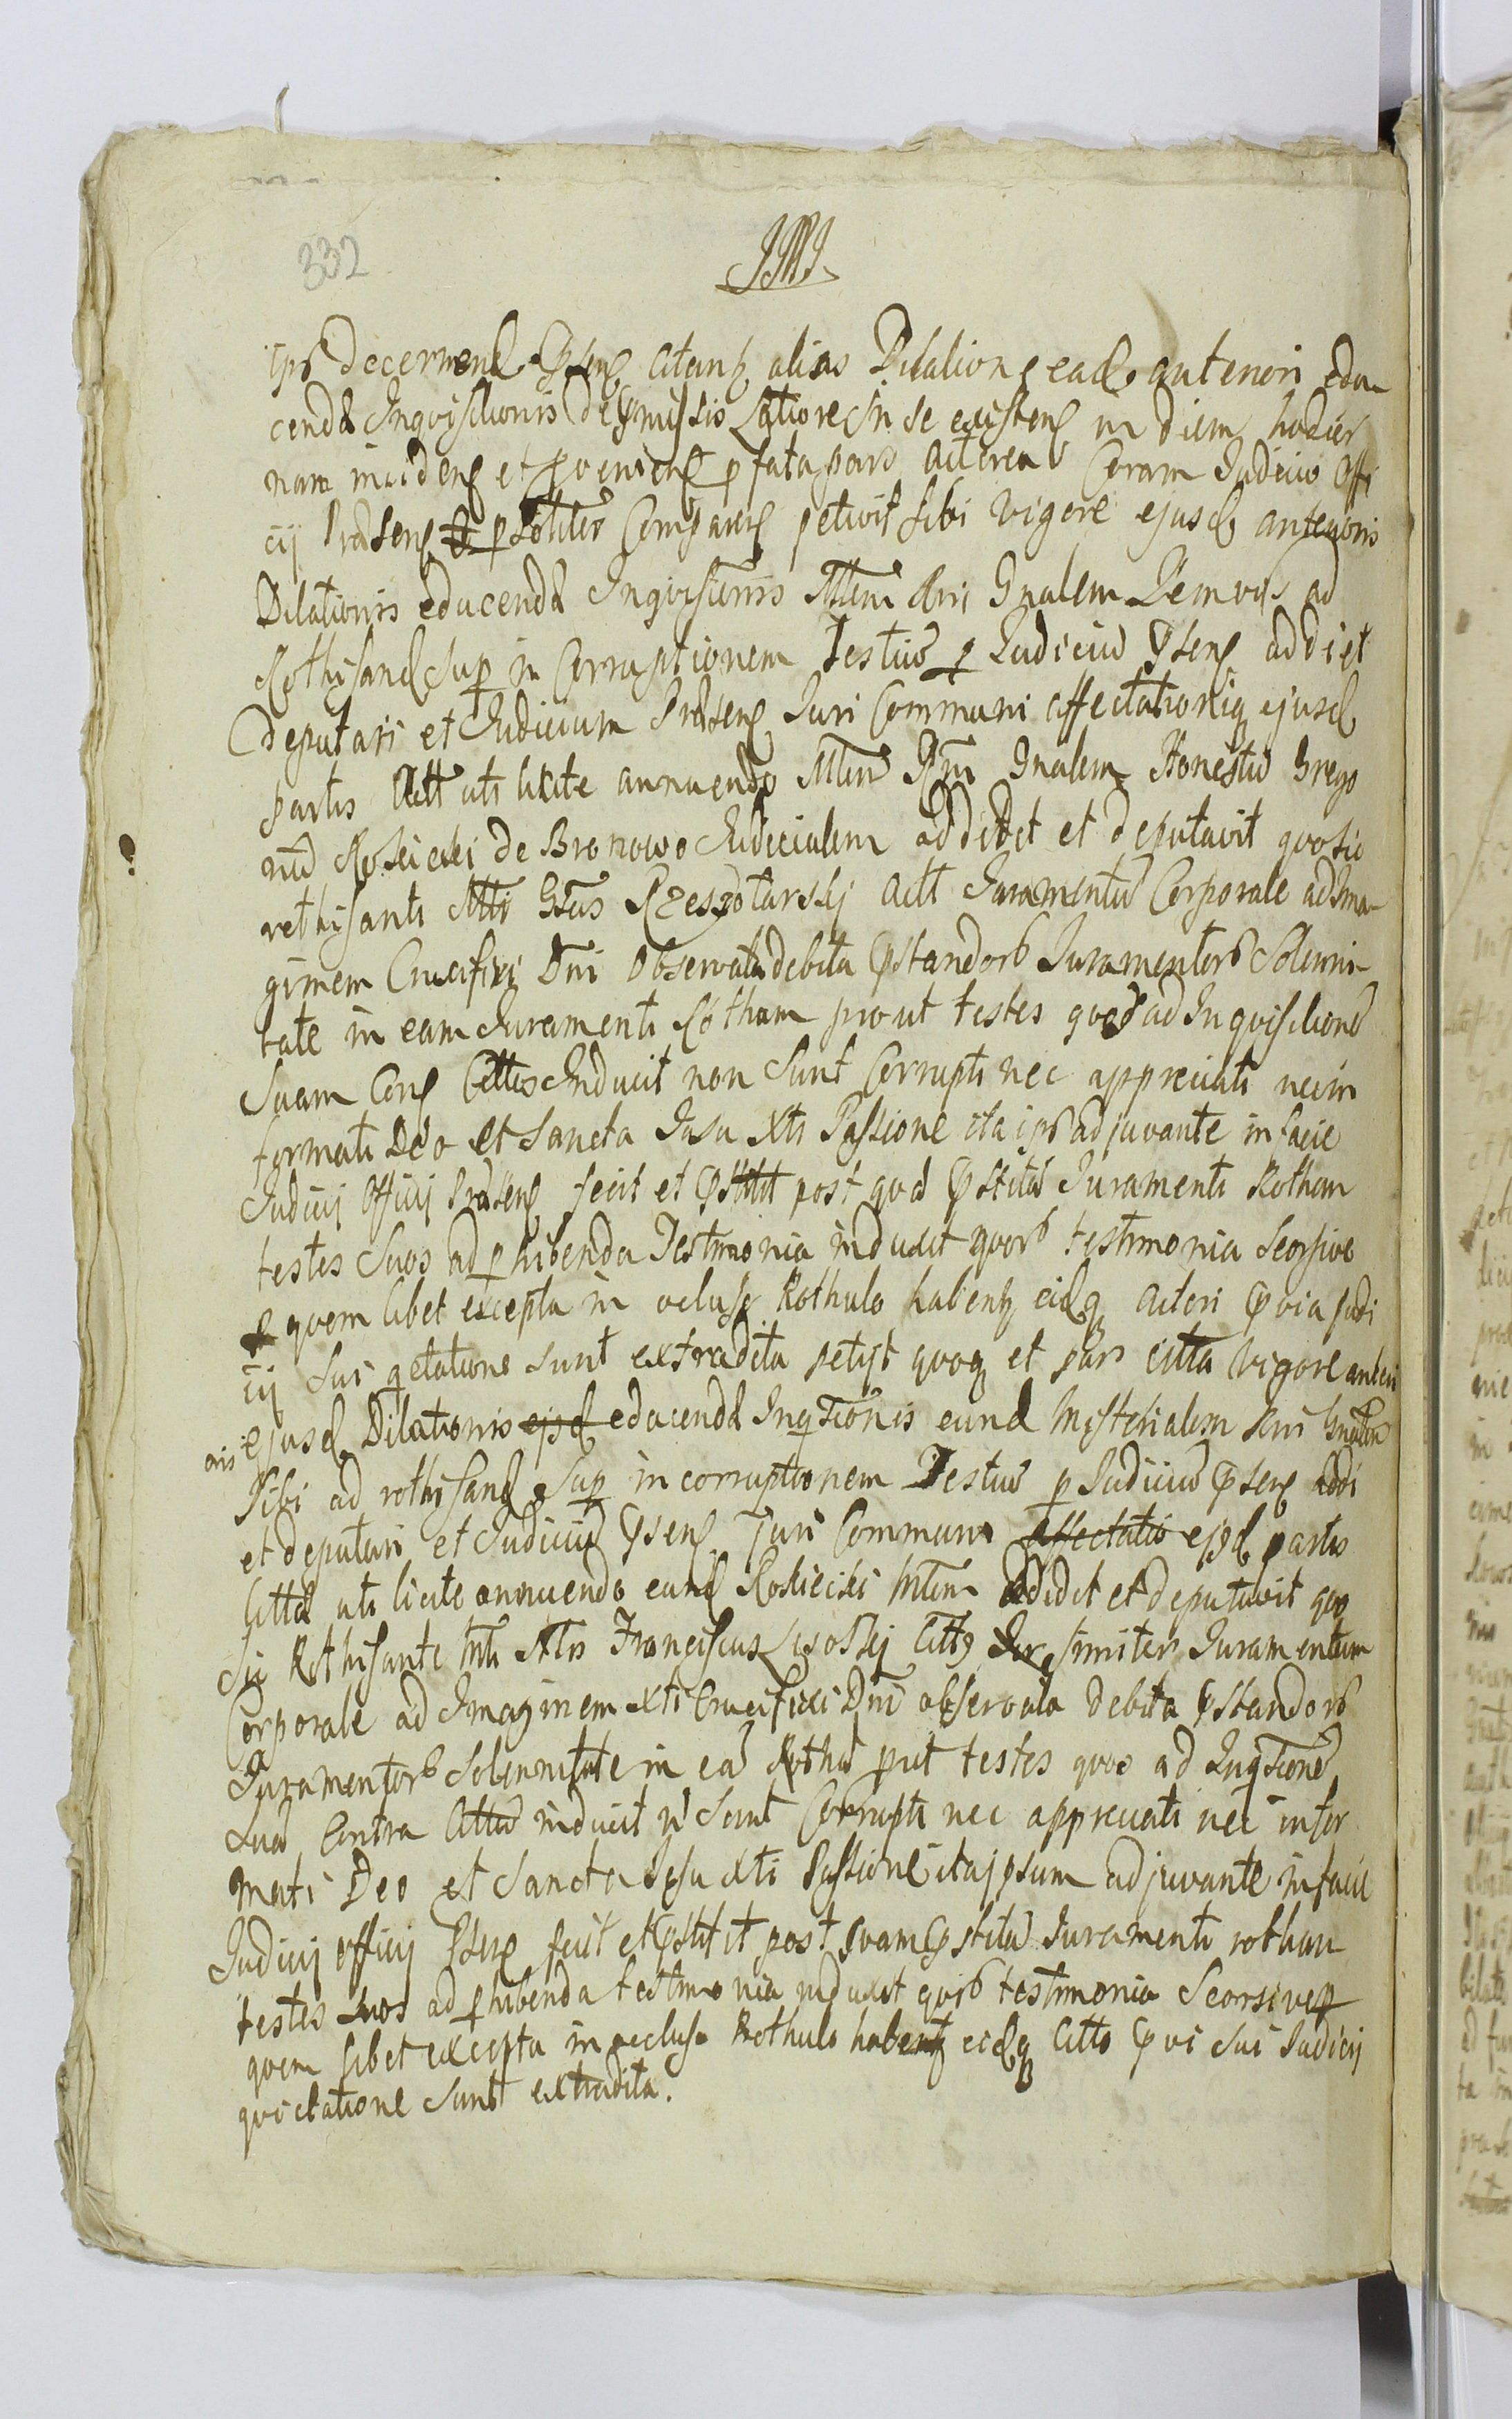 332
ips decernend citant alias Dilatione ead anteriori edu
cenda Inquisitionis in se existen in diem hodier
nam inciden et pvenien pfata pars actorea Coram Judicio Offi
cij Prasen psoliter Comparen petivit sibi vigore ejusd anterioris
Dilationis educenda Inquisitionis Mlem Rni Gnalem ad
Rothisand sup in Corruptionem testiu p Judiciu psens addi et
deputari et Judicium Prasens Juri Communi affectationiq ejusd
partis Act uti licite annuendo Mlem Rni Gnalem Honestu Grego
riu Kosicski de Bronowo Judicialem addidit et deputavit quo sic
rothisanti Mlti Gsus Rzeszotarskj Act Juramentu Corporale ad Ima
ginem Crucifixi Dni observata debita pstandorb Juramentorb Solenni
tate in eam Juramenti Rotham prout testes quos ad Inquisitione
suam Con Cittus Inducit non sunt Corrupti nec appreciati nec in
formati Deo et Sancta Jesu Xti Passione ita ips adjuvante in facie
Judicij Officij Prasen fecit et pstitit post qua pstita Juramenti Rotham
testes suos ad phibenda Testimonia induxit quorb testimonia seorsive
p quem libet excepta in oclusa Rothulo habentq eidq Actori pvia Judi
cij sui qetatione sunt extradita petijt quoq et pars citta vigore anteri
oris ejusd Dilationis ejsd educenda Inqsitionis eund Misterialem Rni Gnalem
Sibi ad rothisand sup incorruptionem Testiu p Judiciu psens addi
et deputari et Judiciu psens Juri Communi affectatio ejsd partis
citta uti licite annuendo eund Kosiecski Mlem addidit et deputavit quo
sic Rothisante Mlti Mltis Franciscus Lisoskj Cittq Jur simiter Juramentum
Corporale ad Imaginem Xti Crucifixi Dni observata debita pstandorb
Juramentorb Solennitate in ea Rotha prut testes quos ad Inqsitione
sua Contra Cittu inducit n sunt Corrupti nec appreciati nec infor
mati Deo et Sancta Jesu Xti Passione ita ipsum adjuvante in facie
Judicij officij Psens fecit et pstitit post quam pstita Juramenti rotham
testes suos ad phibenda testimonia induxit quorb testimonia Seorsive p
quem libet excepta in ocluso Rothulo habentq eidq Citto pvi sui Judicij
quietatione sunt extradita.